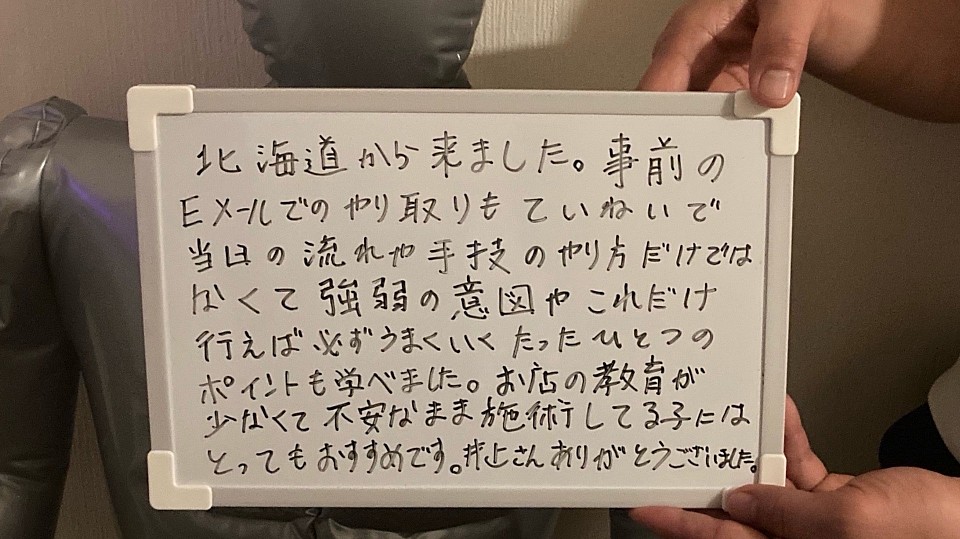 北海道から来ました。事前の
Eメールでのやり取りもていねいで
当日の流れや手技のやり方だけでは
なくて強弱の意図やこれだけ
行えば必ずうまくいくたったひとつの
ポイントも学べました。お店の教育が
少なくて不安なまま施術してる子には
とってもおすすめです。井上さんありがとうございました。